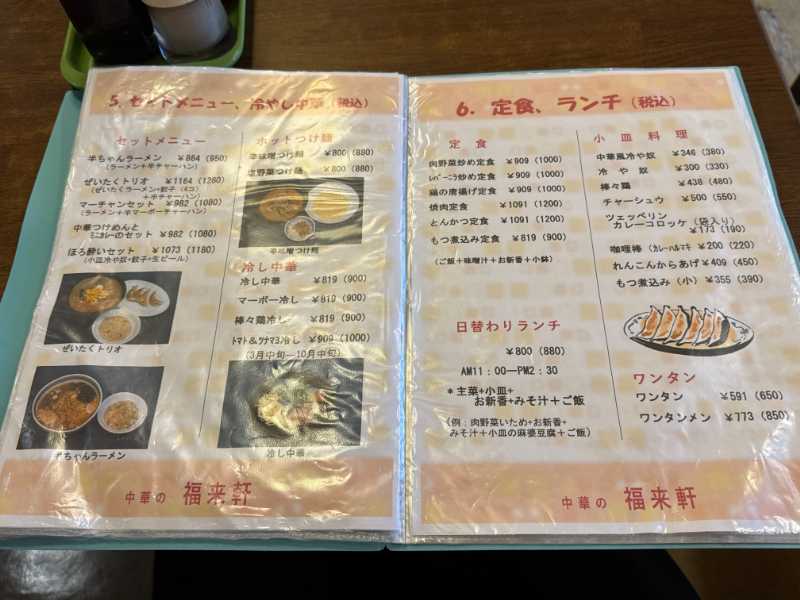 5. セットメニュー、冷やし中華（税込）
セットメニュー
半ちゃんラーメン ￥864（950）
（ラーメン＋半チャーハン）
ぜいたくトリオ ￥1164（1280）
（ぜいたくラーメン＋餃子（4コ）
＋半チャーハン）
マーチャンセット ￥982（1080）
（ラーメン＋半マーボーチャーハン）
中華つけめんと
ミニカレーのセット ￥982（1080）
ほろ酔いセット ￥1073（1180）
（小皿冷や奴+餃子+生ビール）
ぜいたくトリオ
半ちゃんラーメン
ホットつけ麺
辛味噌つけ麺 ￥800（880）
塩野菜つけ麺 ￥800（880）
辛味噌つけ麺
冷し中華
冷し中華 ￥819（900）
マーボー冷し ￥819（900）
棒々鶏冷し ￥819（900）
トマト＆ツナマヨ冷し ￥909（1000）
（3月中旬―10月中旬）
冷し中華
中華の 福来軒
6. 定食、ランチ（税込）
定食
肉野菜炒め定食 ￥909（1000）
ﾚﾊﾞｰﾆﾗ炒め定食 ￥909（1000）
鶏の唐揚げ定食 ￥909（1000）
焼肉定食 ￥1091（1200）
とんかつ定食 ￥1091（1200）
もつ煮込み定食 ￥819（900）
（ご飯＋味噌汁＋お新香＋小鉢）
日替わりランチ
￥800（880）
AM11：00―PM2：30
＊主菜+小皿+
お新香+みそ汁＋ご飯
（例：肉野菜いため+お新香+
みそ汁＋小皿の麻婆豆腐＋ご飯）
小皿料理
中華風冷や奴 ￥346（380）
冷や奴 ￥300（330）
棒々鶏 ￥438（480）
チャーシュウ ￥500（550）
ツェッペリン
カレーコロッケ（袋入り）
￥173（190）
咖喱棒（ｶﾚｰﾊﾙﾏｷ） ￥200（220）
れんこんからあげ ￥409（450）
もつ煮込み（小） ￥355（390）
ワンタン
ワンタン ￥591（650）
ワンタンメン ￥773（850）
中華の 福来軒